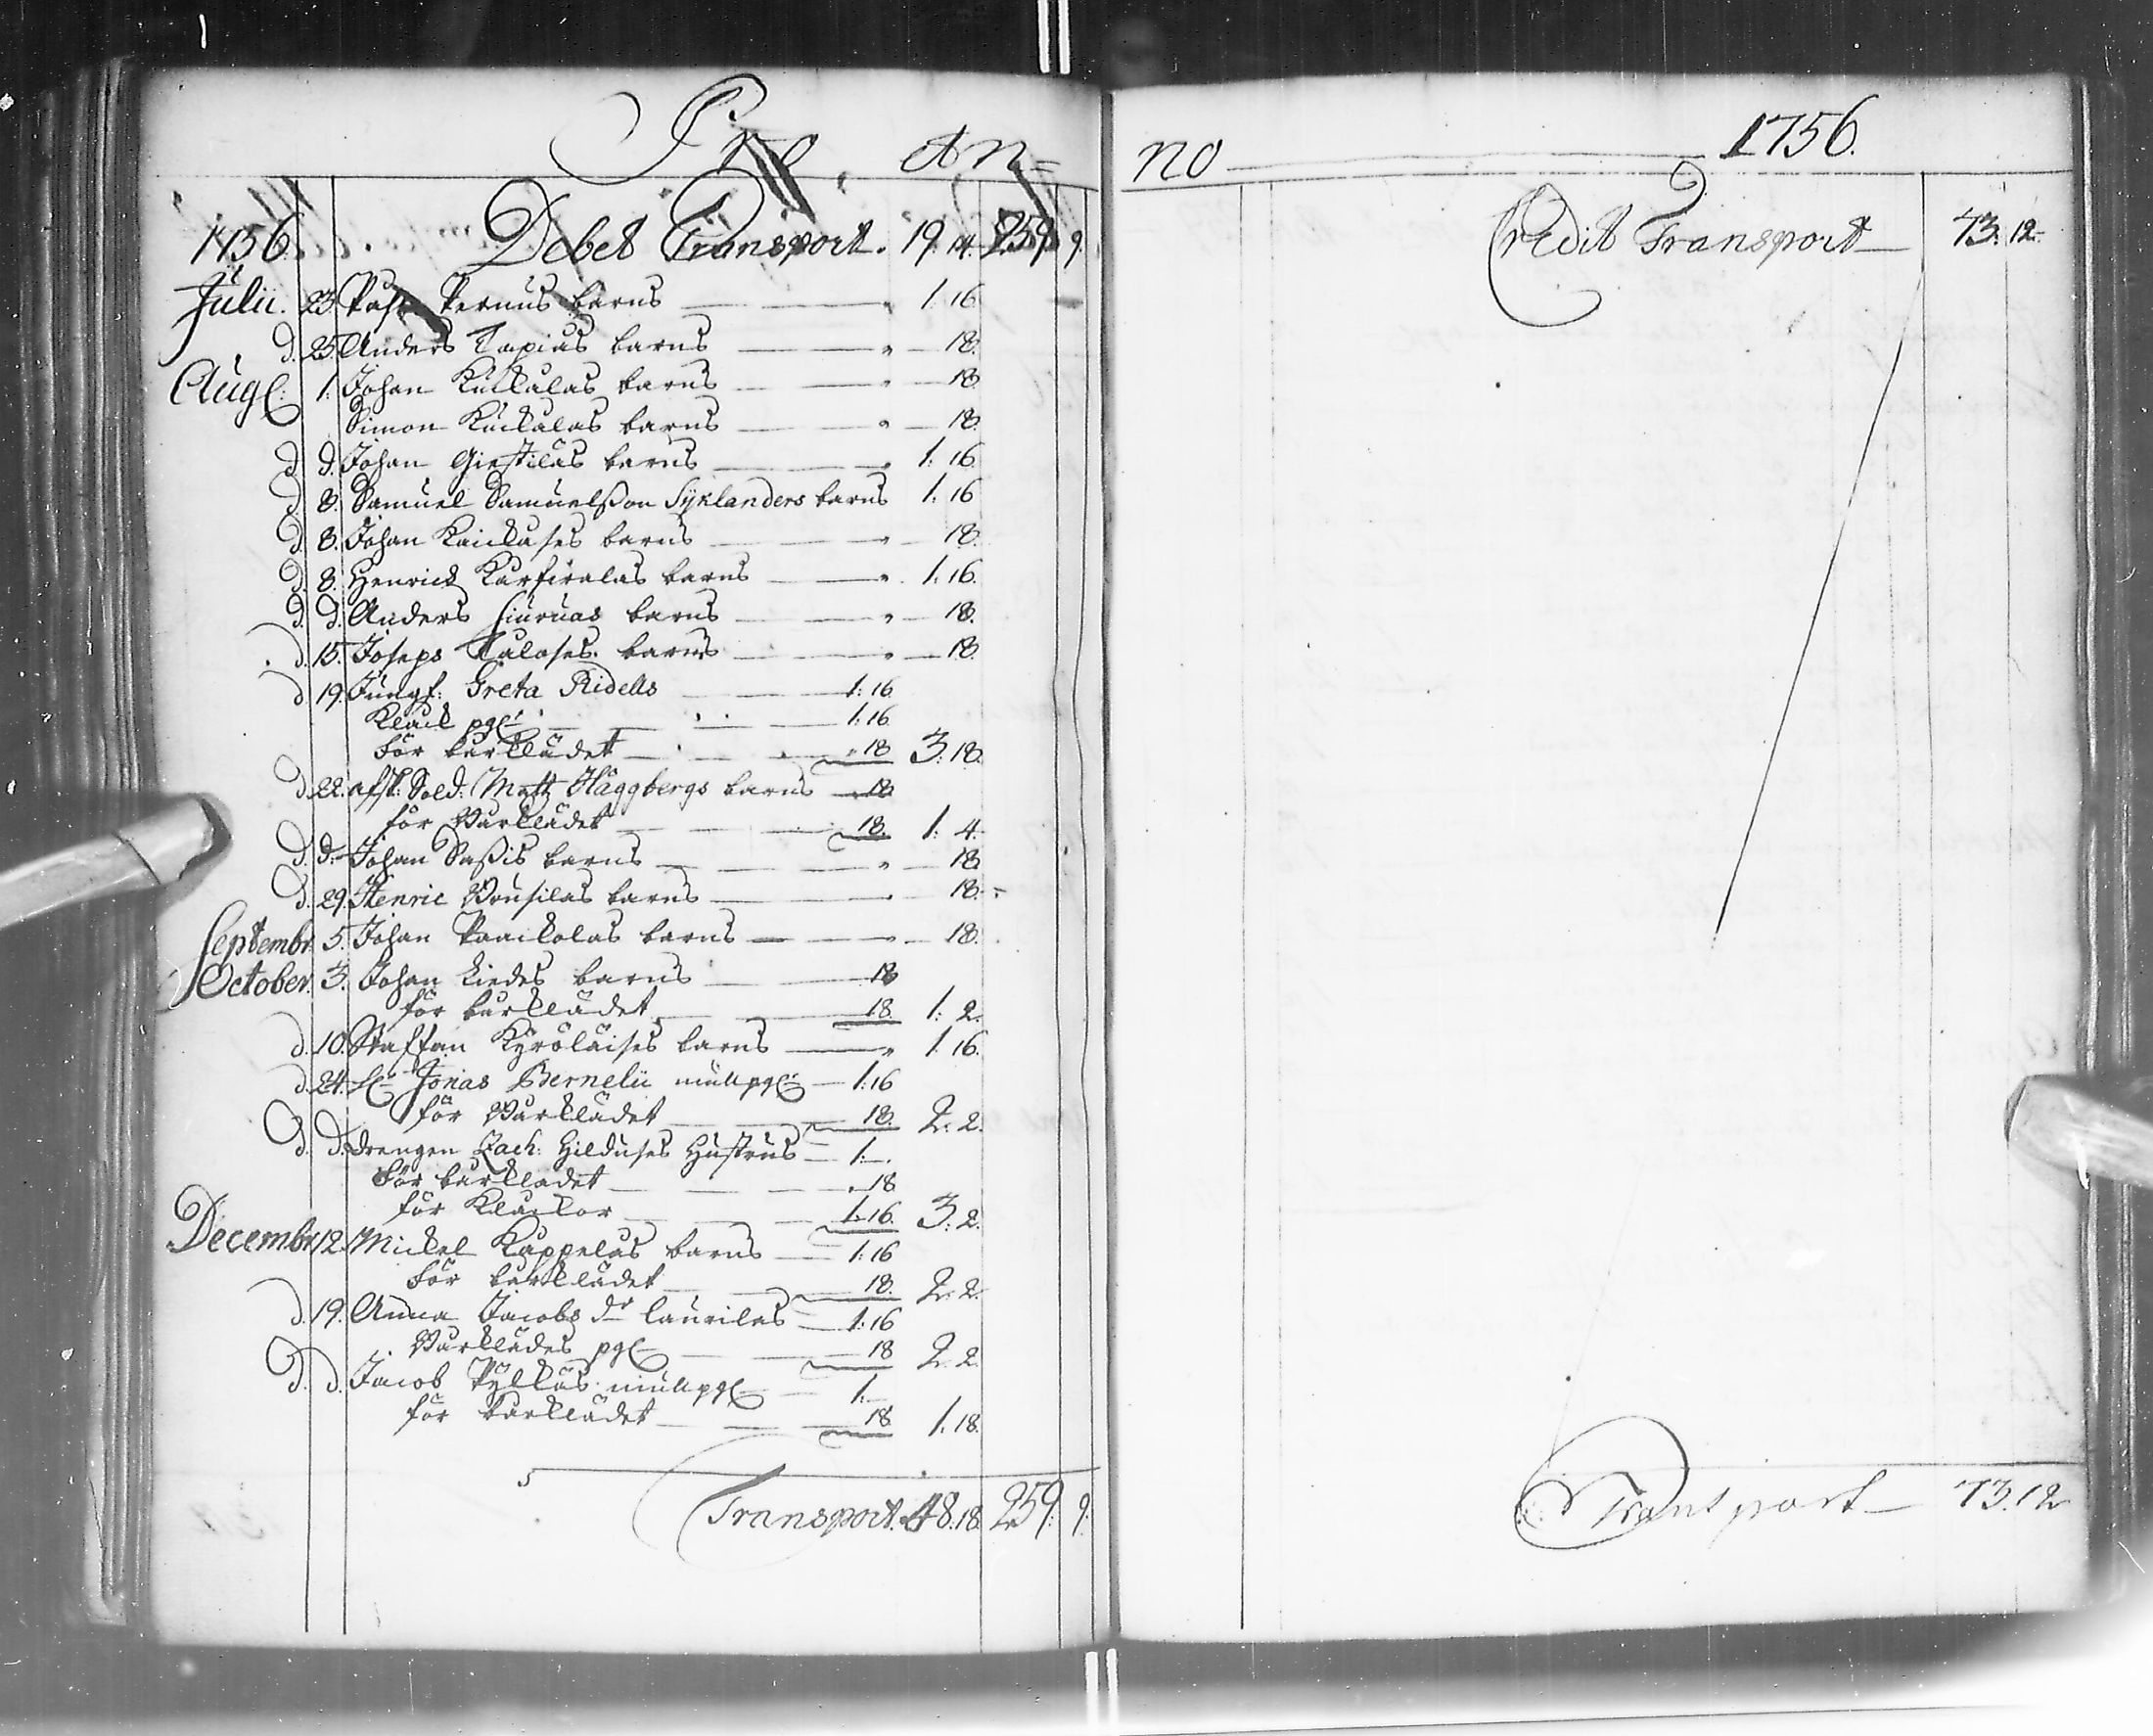 An=
1756. Debet Transport. 19. 14. 259. 9.
Julii. 23. Pernus barns 1. 16.
d. 25. Anders Tapias barns 18.
Aug: 1. Johan Kuckalas barns 18.
Simon Kuckalas barns 18.
d. d. Johan Giestilas barns 1. 16.
d. 8. Samuel Samuelsson Syklanders barns 1. 16
d. 8. Johan barns 18.
d. 8. Henrick barns 1. 16.
d. d. Anders barns 18.
d. 15. Joseps barns 18.
d. 19. Jungf: Greta Ridells 1: 16.
Klock pgr 1: 16.
för bårklädet 18 3. 18.
d. 22. afsk: Sold: Matts Häggbergs barns 18
för Bårklädet 18. 1. 4.
d. d. Johan Sassis barns 18.
d. 29. Henric barns 18.
Septembr. 5. Johan barns 18.
October. 3. Johan Liedes barns 18
för bårklädet 18. 1. 2.
d. 10. Staffan Kyröläises barns 1. 16.
d. 24. Sl. Jonas Bernelii mullpgr 1: 16
för Bårklädet 18. 2. 2.
d. d. drengen Zach: Hilduses Hustrus 1:—.
för bårklädet 18
för Klockor 1: 16. 3: 2.
Decembr. 12. Mickel Kappelas barns 1: 16
för bårklädet 18. 2. 2.
d. 19. Anna Jacobs dr Laurilas 1: 16
Bårklädes pgr 18 2. 2.
d. d. Jacob Pylkäs mullpgr 1:—
för bårklädet 18 1. 18.
Transport. 48. 18. 259. 9.
no 1756.
Credit Transport 73. 12.
Transport 73. 12